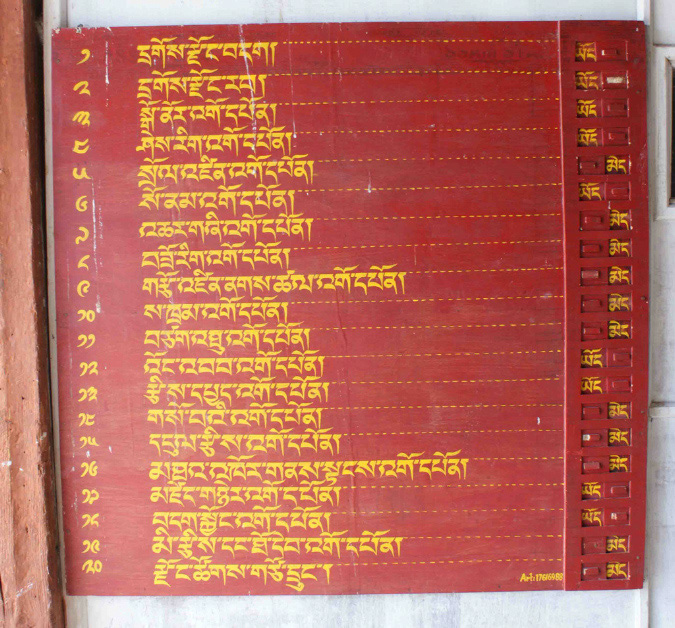 ༡ དྲགོས་རྫོང་བདག། ཡོད
༢ དྲགོས་རྫོང་རབ། ཡོད
༣ སྒོ་ནོར་འགོ་དཔོན། ཡོད
༤ ཤེས་རིག་འགོ་དཔོན། ཡོད
༥ སྲོལ་འཛིན་འགོ་དཔོན། མེད
༦ སོ་ནམ་འགོ་དཔོན། ཡོད
༧ འཆར་གཞི་འགོ་དཔོན། མེད
༨ བཟོ་རིག་འགོ་དཔོན། མེད
༩ གཙོ་འཛིན་ནགས་ཚལ་འགོ་དཔོན། མེད
༡༠ ས་ཁྲམ་འགོ་དཔོན། མེད
༡༡ བཙག་འཐུ་འགོ་དཔོན། མེད
༡༢ འོང་འབབ་འགོ་དཔོན། ཡོད
༡༣ རྩིས་དཔྱད་འགོ་དཔོན། ཡོད
༡༤ གསོ་བའི་འགོ་དཔོན། མེད
༡༥ དངུལ་རྩིས་འགོ་དཔོན། མེད
༡༦ མཐའ་འཁོར་གནས་སྟངས་འགོ་དཔོན། མེད
༡༧ མཛོད་གཉེར་འགོ་དཔོན། ཡོད
༡༨ བདག་སྐྱོང་འགོ་དཔོན། ཡོད
༡༩ མི་རྩིས་དང་ཐོ་དེབ་འགོ་དཔོན། མེད
༢༠ རྫོང་ཚོགས་གཙོ་དྲུང་། མེད